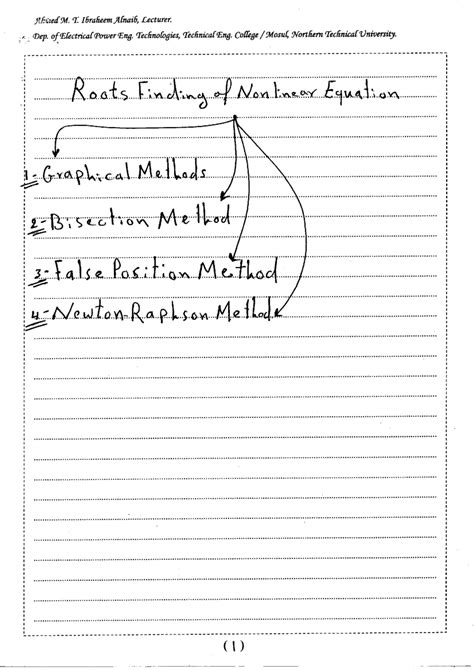 M. T. Ibraheem Alnaib, Lecturer.
Dep. of Electrical Power Eng. Technologies, Technical Eng. College / Mosul, Northern Technical University.
Roots Finding of Nonlinear Equation
1- Graphical Methods
2- Bisection Method
3- False Position Method
4- Newton-Raphson Method
(1)